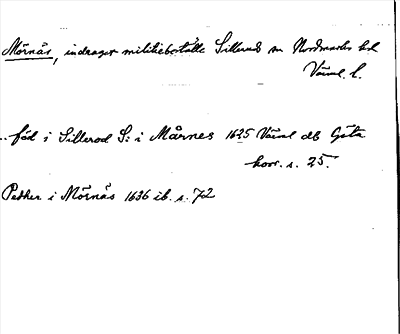 Mörnäs, indraget militieboställe Sillerud sn Nordmarks hd
Värml. l.
..född i Sillerod S: i Mårnes 1625 Värml db Göta
hovr. s. 25.
Pedher i Mörnäs 1636 ib. s. 72